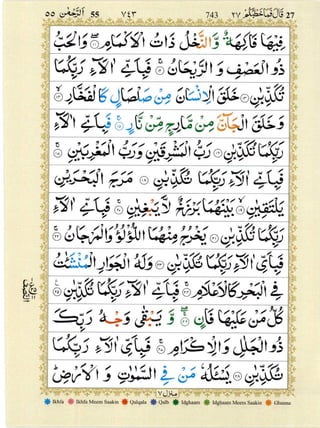 ٥٥ اَلرَّحْمٰن 55 ٧٤٣ 743 ٢٧ قَالَ فَمَا خَطْبُكُمْ 27
فِيْهَا فَاكِهَةٌ وَّالنَّخْلُ ذَاتُ الْاَكْمَامِ ۝١١ وَالْحَبُّ
ذُو الْعَصْفِ وَالرَّيْحَانُ ۝١٢ فَبِاَيِّ اٰلَآءِ رَبِّكُمَا
تُكَذِّبٰنِ ۝١٣ خَلَقَ الْاِنْسَانَ مِنْ صَلْصَالٍ كَالْفَخَّارِ ۝١٤
وَخَلَقَ الْجَآنَّ مِنْ مَّارِجٍ مِّنْ نَّارٍ ۝١٥ فَبِاَيِّ اٰلَآءِ
رَبِّكُمَا تُكَذِّبٰنِ ۝١٦ رَبُّ الْمَشْرِقَيْنِ وَرَبُّ الْمَغْرِبَيْنِ ۝١٧
فَبِاَيِّ اٰلَآءِ رَبِّكُمَا تُكَذِّبٰنِ ۝١٨ مَرَجَ الْبَحْرَيْنِ
يَلْتَقِيٰنِ ۝١٩ بَيْنَهُمَا بَرْزَخٌ لَّا يَبْغِيٰنِ ۝٢٠ فَبِاَيِّ اٰلَآءِ
رَبِّكُمَا تُكَذِّبٰنِ ۝٢١ يَخْرُجُ مِنْهُمَا اللُّؤْلُؤُ وَالْمَرْجَانُ ۝٢٢
فَبِاَيِّ اٰلَآءِ رَبِّكُمَا تُكَذِّبٰنِ ۝٢٣ وَلَهُ الْجَوَارِ الْمُنْشَئٰتُ
فِي الْبَحْرِ كَالْاَعْلَامِ ۝٢٤ فَبِاَيِّ اٰلَآءِ رَبِّكُمَا تُكَذِّبٰنِ ۝٢٥
كُلُّ مَنْ عَلَيْهَا فَانٍ ۝٢٦ وَّيَبْقٰى وَجْهُ رَبِّكَ
ذُو الْجَلٰلِ وَالْاِكْرَامِ ۝٢٧ فَبِاَيِّ اٰلَآءِ رَبِّكُمَا
تُكَذِّبٰنِ ۝٢٨ يَسْئَلُهٗ مَنْ فِي السَّمٰوٰتِ وَالْاَرْضِ
منزل ٧
Ikhfa Ikhfa Meem Saakin Qalqala Qalb Idghaam Idghaam Meem Saakin Ghunna